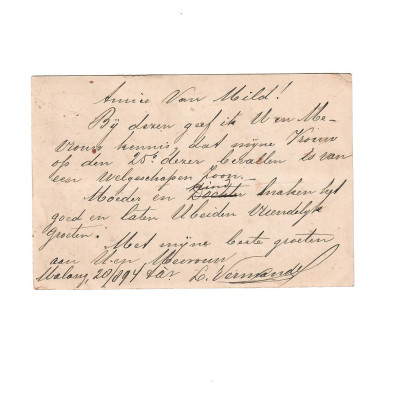 Amice Van Mild!
Bij dezen geef ik U en Me-
vrouw kennis, dat mijne Vrouw
op den 25e dezer bevallen is van
een welgeschapen Zoon.
kind
Moeder en Dochter maken het
goed en laten Ubeiden Vriendelijk
groeten.
Met mijne beste groeten
aan U en Mevrouw
Malang, 20/894 L. Vermande